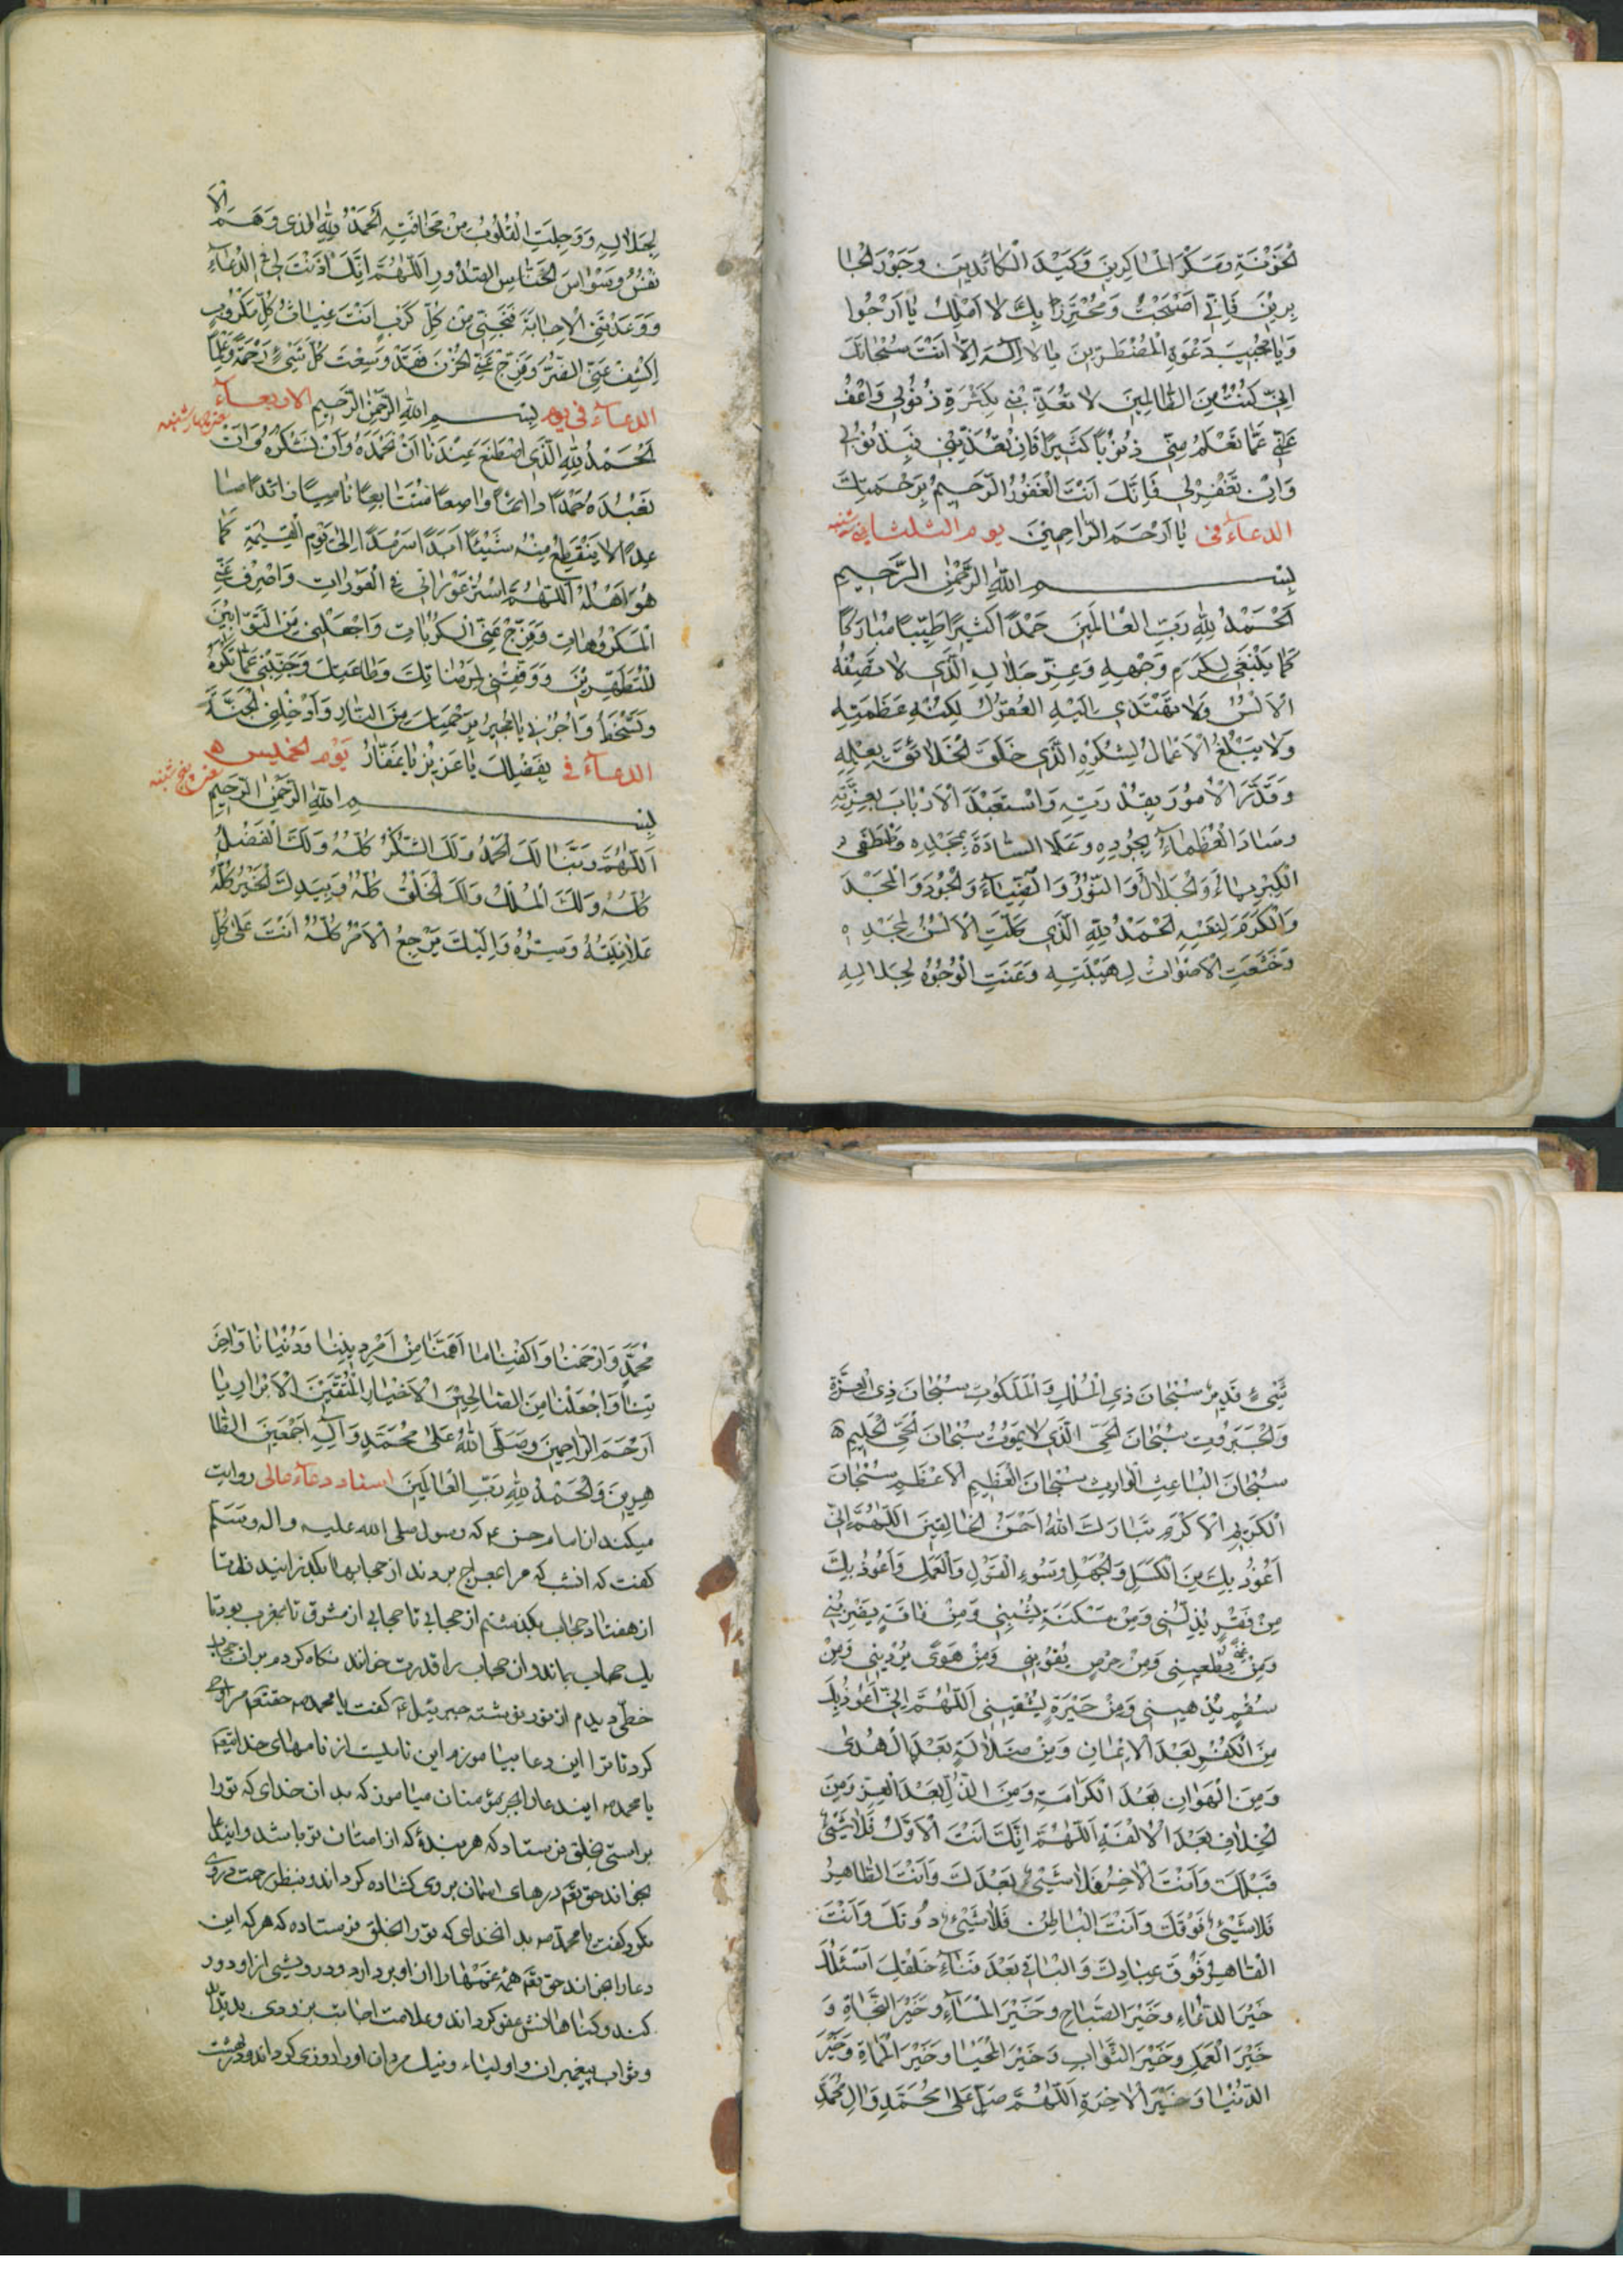 الخَوَنَةِ وَمَكْرَ الماكِرينَ وَكَيْدَ الكائِدينَ وَجَوْرَ الجا
بِرينَ فَاِنّي اَصْبَحْتُ وَمُحْتَرِزًا بِكَ لا اَمْلِكُ ما اَرْجُوا
وَيا مُجيبَ دَعْوَةِ المُضْطَرّينَ يا لا اِلٰهَ اِلّا اَنْتَ سُبْحانَكَ
اِنّي كُنْتُ مِنَ الظّالِمينَ لا تُعَذِّبْني بِكَثْرَةِ ذُنُوبي وَاعْفُ
عَنّي عَمّا تَعْلَمُ مِنّي ذُنُوبًا كَثيرًا فَاِنْ تُعَذِّبْني فَبِذُنُوبي
وَاِنْ تَغْفِرْ لي فَاِنَّكَ اَنْتَ الْغَفُورُ الرَّحيمُ بِرَحْمَتِكَ
يا اَرْحَمَ الرّاحِمينَ الدعاء في يوم الثلثا
بِسْمِ اللهِ الرَّحْمٰنِ الرَّحيمِ
اَلْحَمْدُ لِلّٰهِ رَبِّ الْعالَمينَ حَمْدًا كَثيرًا طَيِّبًا مُبارَكًا
كَما يَنْبَغي لِكَرَمِ وَجْهِهِ وَعِزِّ جَلالِهِ الَّذي لا تَصِفُهُ
الْاَلْسُنُ وَلا تَهْتَدي اِلَيْهِ الْعُقُولُ لِكُنْهِ عَظَمَتِهِ
وَلا يَبْلُغُ الْاَعْمالُ لِشُكْرِهِ الَّذي خَلَقَ الْخَلائِقَ بِعِلْمِهِ
وَقَدَّرَ الْاُمُورَ بِقُدْرَتِهِ وَاسْتَعْبَدَ الْاَرْبابَ بِعِزَّتِهِ
وَسادَ الْعُظَماءَ بِجُودِهِ وَعَلَا السّادَةَ بِمَجْدِهِ
الْكِبْرِياءَ وَالْجَلالَ وَالنُّورَ وَالضِّياءَ وَالْجُودَ وَالْمَجْدَ
وَالْكَرَمَ لِنَفْسِهِ الْحَمْدُ لِلّٰهِ الَّذي كَلَّتِ الْاَلْسُنُ لِمَجْدِهِ
وَخَشَعَتِ الْاَصْواتُ لِهَيْبَتِهِ وَعَنَتِ الْوُجُوهُ لِجَلالِهِ
لِجَلالِهِ وَوَجِلَتِ الْقُلُوبُ مِنْ مَخافَتِهِ اَلْحَمْدُ لِلّٰهِ الَّذي
نَفْسُ وَسْواسَ الْخَنّاسِ الصُّدُورِ اَللّٰهُمَّ اِنَّكَ اَذِنْتَ لي في الدُّعاءِ
وَوَعَدْتَنِي الْاِجابَةَ فَنَجِّني مِنْ كُلِّ كَرْبٍ اَنْتَ غِياثُ كُلِّ مَكْرُوبٍ
اِكْشِفْ عَنِّي الضُّرَّ وَفَرِّجْ عَنِّي الْحُزْنَ فَقَدْ وَسِعْتَ كُلَّ شَيْءٍ رَحْمَةً وَعِلْمًا
الدعاء في يوم الاربعاء بِسْمِ اللهِ الرَّحْمٰنِ الرَّحيمِ چهار شنبه
اَلْحَمْدُ لِلّٰهِ الَّذي اصْطَنَعَ عِنْدَنا اَنْ نَحْمَدَهُ وَاَنْ نَشْكُرَهُ وَاَنْ
نَعْبُدَهُ حَمْدًا دائِمًا واصِعًا مُتَتابِعًا نامِيًا زائِدًا صا
عِدًا لا يَنْقَطِعُ مِنْهُ شَيْئًا اَبَدًا سَرْمَدًا اِلىٰ يَوْمِ الْقِيٰمَةِ كَما
هُوَ اَهْلُهُ اَللّٰهُمَّ اسْتُرْ عَوْراتي في الْعَوْراتِ وَاصْرِفْ عَنِّي
الْمَكْرُوهاتِ وَفَرِّجْ عَنِّي الْكُرُباتِ وَاجْعَلْني مِنَ التَّوّابينَ
الْمُتَطَهِّرينَ وَوَفِّقْني لِمَرْضاتِكَ وَطاعَتِكَ وَجَنِّبْني عَمّا تَكْرَهُ
وَتَسْخَطُ وَاَجِرْني يا مُجيرُ بِرَحْمَتِكَ مِنَ النّارِ وَاَدْخِلْنِي الْجَنَّةَ
بِفَضْلِكَ يا عَزيزُ يا غَفّارُ الدعاء في يوم الخميس پنج شنبه
بِسْمِ اللهِ الرَّحْمٰنِ الرَّحيمِ
اَللّٰهُمَّ رَبَّنا لَكَ الْحَمْدُ وَلَكَ الشُّكْرُ كُلُّهُ وَلَكَ الْفَضْلُ
كُلُّهُ وَلَكَ الْمُلْكُ وَلَكَ الْخَلْقُ كُلُّهُ وَبِيَدِكَ الْخَيْرُ كُلُّهُ
عَلانِيَتُهُ وَسِرُّهُ وَاِلَيْكَ يَرْجِعُ الْاَمْرُ كُلُّهُ اَنْتَ عَلىٰ كُلِّ
شَيْءٍ قَديرٌ سُبْحانَ ذِي الْمُلْكِ وَالْمَلَكُوتِ سُبْحانَ ذِي الْعِزَّةِ
وَالْجَبَرُوتِ سُبْحانَ الْحَيِّ الَّذي لا يَمُوتُ سُبْحانَ الْحَيِّ الْحَليمِ
سُبْحانَ الْباعِثِ الْوارِثِ سُبْحانَ الْعَظيمِ الْاَعْظَمِ سُبْحانَ
الْكَريمِ الْاَكْرَمِ تَبارَكَ اللهُ اَحْسَنُ الْخالِقينَ اَللّٰهُمَّ اِنّي
اَعُوذُ بِكَ مِنَ الْكَسَلِ وَالْجَهْلِ وَسُوءِ الْقَوْلِ وَالْعَمَلِ وَاَعُوذُ بِكَ
مِنْ فَقْرٍ يُذِلُّني وَمِنْ مَسْكَنَةٍ وَمِنْ فاقَةٍ
وَمِنْ غِنىً يُطْغيني وَمِنْ حِرْصٍ يُغْويني وَمِنْ هَوىً يُرْديني وَمِنْ
سُقْمٍ وَمِنْ حَيْرَةٍ يُشْقيني اَللّٰهُمَّ اِنّي اَعُوذُ بِكَ
مِنَ الْكُفْرِ بَعْدَ الْايمانِ وَمِنْ ضَلالَةٍ بَعْدَ الْهُدىٰ
وَمِنَ الْهَوانِ بَعْدَ الْكَرامَةِ وَمِنَ الذُّلِّ بَعْدَ الْعِزِّ وَمِنَ
الْخِلافِ بَعْدَ الْاُلْفَةِ اَللّٰهُمَّ اِنَّكَ اَنْتَ الْاَوَّلُ فَلا شَيْءٌ
قَبْلَكَ وَاَنْتَ الْاٰخِرُ فَلا شَيْءٌ بَعْدَكَ وَاَنْتَ الظّاهِرُ
فَلا شَيْءٌ فَوْقَكَ وَاَنْتَ الْباطِنُ فَلا شَيْءٌ دُونَكَ وَاَنْتَ
الْقاهِرُ فَوْقَ عِبادِكَ وَالْباقي بَعْدَ فَناءِ خَلْقِكَ اَسْئَلُكَ
خَيْرَ الدُّعاءِ وَخَيْرَ الصَّباحِ وَخَيْرَ الْمَساءِ وَخَيْرَ النَّجاةِ وَ
خَيْرَ الْعَمَلِ وَخَيْرَ الثَّوابِ وَخَيْرَ الْمَحْيا وَخَيْرَ الْمَماةِ وَخَيْرَ
الدُّنْيا وَخَيْرَ الْاٰخِرَةِ اَللّٰهُمَّ صَلِّ عَلىٰ مُحَمَّدٍ وَاٰلِ مُحَمَّدٍ
مُحَمَّدٍ وَارْحَمْنا وَاكْفِنا ما اَهَمَّنا مِنْ اَمْرِ دينِنا وَدُنْيانا وَاٰخِرَ
تِنا وَاجْعَلْنا مِنَ الصّالِحينَ الْاَخْيارِ الْمُتَّقينَ الْاَبْرارِ يا
اَرْحَمَ الرّاحِمينَ وَصَلَّى اللهُ عَلىٰ مُحَمَّدٍ وَآلِهِ اَجْمَعينَ الطّا
هِرينَ وَالْحَمْدُ لِلّٰهِ رَبِّ الْعالَمينَ اسناد دعاء عالى روايت
ميكند از امام حسن ع كه رسول صلى الله عليه و اله وسلم
كفت كه انشب كه مرا بمعراج بردند از حجابها بگذرانيدند تا
از هفتاد حجاب بگذشتم از حجابى تا حجابى از مشرق تا بمغرب بود تا
يك حجاب بماند و ان حجاب را قدرت خوانند نكاه كردم بران حجاب
خطى ديدم از نور نوشته جبرئيل ع كفت يا محمد ص حقتعم مرا
كرد تا ترا اين دعا بياموزم اين ناميست از نامهاى خدايتعم
يا محمد ص ايندعا را بمؤمنان بياموز كه بدان خداى كه تورا
براستى بخلق فرستاد كه هر بندهٔ كه از امتان تو باشد و ايندعا
بخواند حق تعم درهاى اسمان بروى كشاده كرداند و بنظر رحمت در وى
نكرد و كفت يا محمد ص بدان خداى كه تورا بخلق فرستاده كه هر كه اين
دعا را بخواند حق تعم همهٔ غمها را از او بردارد و درويشى از او دور
كند و كناهانش عفو كرداند و علامت اجابت بر وى پديد
و ثواب پيغمبران و اولياء و نيك مردان او را روزى كرداند و در بهشت